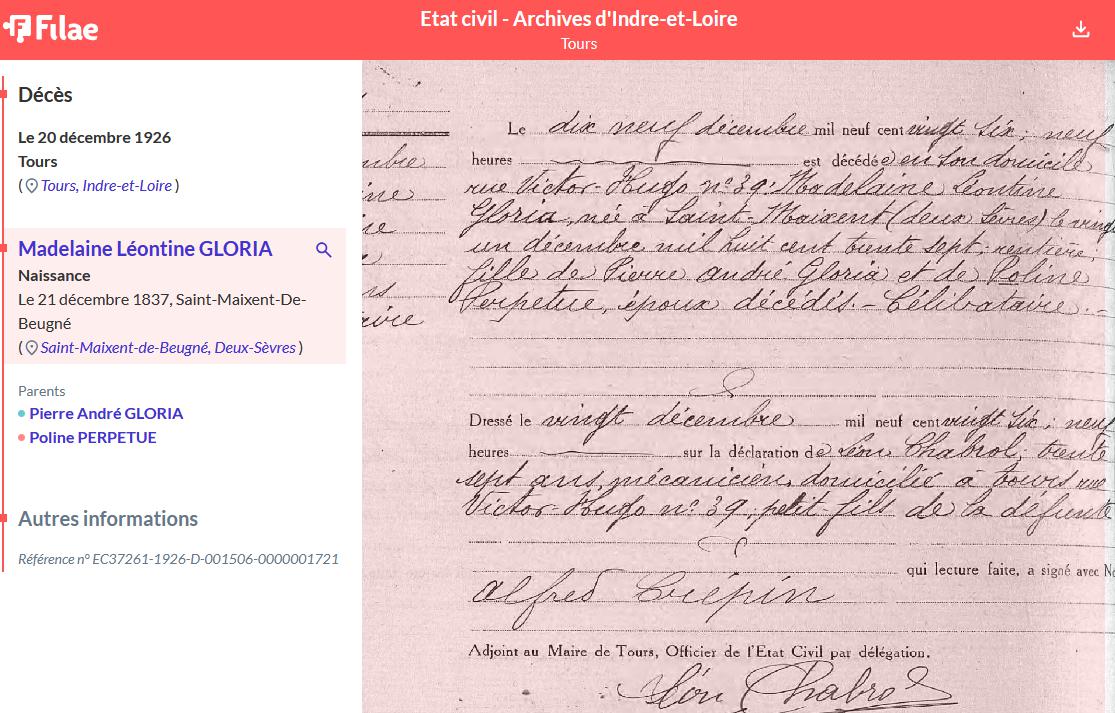 Filae
Etat civil - Archives d'Indre-et-Loire
Tours
Décès
Le 20 décembre 1926
Tours
( Tours, Indre-et-Loire )
Madelaine Léontine GLORIA
Naissance
Le 21 décembre 1837, Saint-Maixent-De-
Beugné
( Saint-Maixent-de-Beugné, Deux-Sèvres )
Parents
Pierre André GLORIA
Poline PERPETUE
Autres informations
Référence n° EC37261-1926-D-001506-0000001721
Le dix neuf décembre mil neuf cent vingt six, neuf
heures est décédée en son domicile
rue Victor-Hugo n° 39: Madelaine Léontine
Gloria, née à Saint-Maixent (deux Sèvres) le vingt
un décembre mil huit cent trente sept; rentière,
fille de Pierre andré Gloria et de Poline
Perpetue, époux décédés. - Célibataire. -
Dressé le vingt décembre mil neuf cent vingt six, neuf
heures sur la déclaration de Léon Chabrol, trente
sept ans, mécanicien, domicilié à tours rue
Victor-Hugo n° 39, petit-fils de la défunte
qui lecture faite, a signé avec
alfred Crépin
Adjoint au Maire de Tours, Officier de l'Etat Civil par délégation.
Léon Chabrol